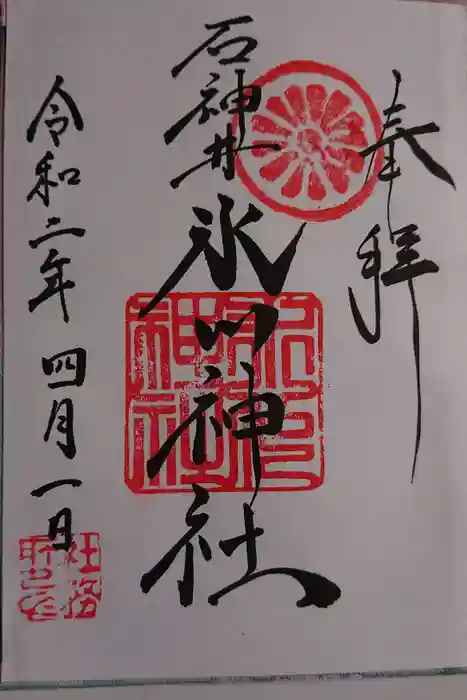 奉拝
石神井氷川神社
氷川
神社
令和二年四月一日
社務